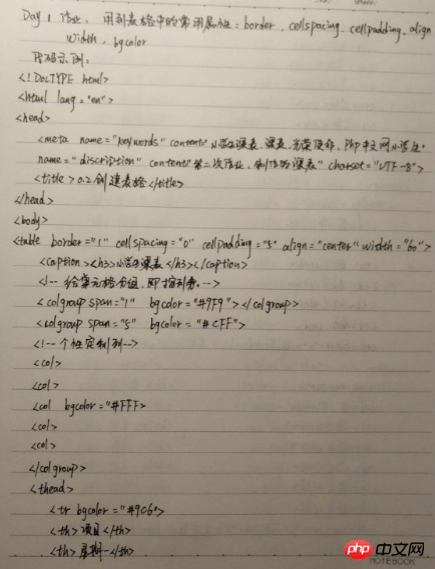 Day 1 作业: 用到表格中的常用属性: border, cellspacing, cellpadding, align
width, bgcolor
代码示例:
<!DOCTYPE html>
<html lang="en">
<head>
<meta name="keywords" content="小学生课表,课表, PHP中文网
name="discription" content="第二次作业,制作的课表" charset="UTF-8">
<title>0.2创建表格</title>
</head>
<body>
<table border="1" cellspacing="0" cellpadding="5" align="center" width="60">
<caption><h3>小学生课表</h3></caption>
<!-- 给单元格分组,即指列. -->
<colgroup span="1" bgcolor="#9F9"></colgroup>
<colgroup span="5" bgcolor="#CFF">
<!-- 个性定制列-->
<col>
<col>
<col bgcolor="#FFF>
<col>
<col>
</colgroup>
<thead>
<tr bgcolor="#9C6">
<th>项目</th>
<th>星期一</th>
php 中文网
NOTEBOOK